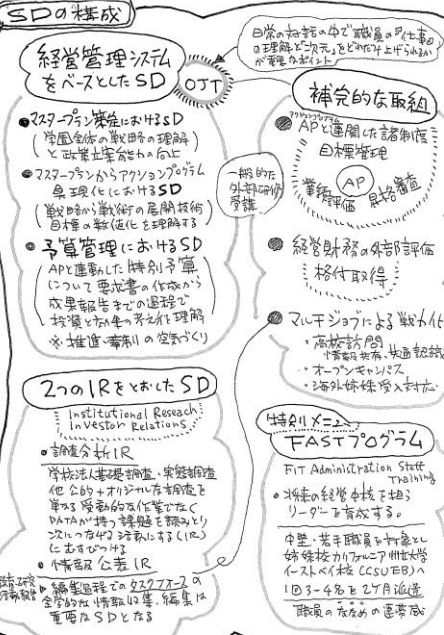 SDの構成
経営管理システム
をベースとしたSD
OJT
日常の対話の中で職員の『仕事』
の理解と『次元』をどれだけ上げられるか
が重要なポイント
●マスタープラン策定におけるSD
(学園全体の戦略の理解
と政策立案能力の向上)
・マスタープランからアクションプログラム
具現化におけるSD
(戦略から戦術の展開技術
目標の数値化を理解する)
● 予算管理におけるSD
APと連動した特別予算
について要求書の作成から
成果報告までの過程で
投資と効果の考え方理解
※推進・牽制の空気づくり
一般的な
外部研修
受講
補完的な取組
アクションプログラム
● APと連関した諸制度
目標管理
AP
業績評価
昇格審査
● 経営財務の外部評価
格付取得
● マルチジョブによる戦力化
・高校訪問
情報共有、共通認識
・オープンキャンパス
・海外姉妹校受入対応
2つのIRをとおしたSD
Institutional Reseach
Investor Relations
・調査分析IR
学校法人基礎調査・実態調査
他 公的+オリジナルな調査を
単なる受動的な作業でなく
DATAが持つ課題を読みとり
次につなげる活動にする(IR)
にむすびつける
・情報公表IR
編集過程でのタスクフォースの
全学的な情報収集・編集は
重要なSDとなる
特別メニュー
FASTプログラム
FIT Administration Staff
Training
・将来の経営中核を担う
リーダーを育成する。
中堅・若手職員を対象とし
姉妹校カリフォルニア州立大学
イーストベイ校(CSUEB)へ
1回3-4名を2ヶ月派遣
職員のななめの連帯感